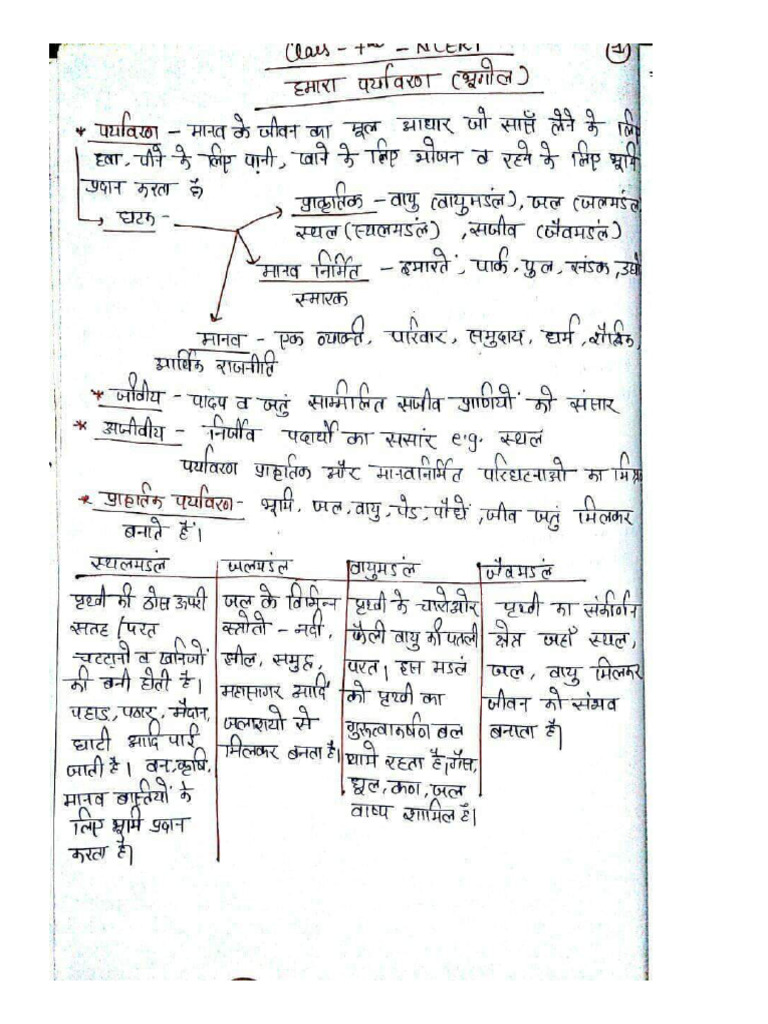 Class - 7th - NCERT (1)
हमारा पर्यावरण (भूगोल)
* पर्यावरण - मानव के जीवन का मूल आधार जो साँस लेने के लिए
हवा, पीने के लिए पानी, खाने के लिए भोजन व रहने के लिए भूमि
प्रदान करता है
घटक -
प्राकृतिक - वायु (वायुमडंल), जल (जलमडंल
स्थल (स्थलमडंल) , सजीव (जैवमडंल)
मानव निर्मित - इमारतें, पार्क, पुल, संडक,
स्मारक
मानव - एक व्यक्ति, परिवार, समुदाय, धर्म, शैक्षिक,
आर्थिक राजनीति
* जीवीय - पादप व जतुं सम्मिलित सजीव प्राणियों को संसार
* अजीवीय - निर्जीव पदार्थो का ससांर e.g. स्थल
पर्यावरण प्राकृतिक और मानवनिर्मित परिघटनाओ का
* प्राकृतिक पर्यावरण - भूमि, जल, वायु, पेड, पौधें, जीव जतुं मिलकर
बनाते हैं।
स्थलमडंल जलमडंल वायुमडंल जैवमडंल
पृथ्वी की ठोस ऊपरी
सतह / परत
चटटानो व खनिजों
की बनी होती है।
पहाड, पठार, मैदान,
घाटी आदि पाई
जाती है। वन, कृषि,
मानव बस्तियों के
लिए भूमि प्रदान
करता है।
जल के विभिन्न
स्त्रोतो - नदी,
झील, समुद्र,
महासागर आदि
जलाशयो से
मिलकर बनता है।
पृथ्वी के चारोओर
फैली वायु की पतली
परत। इस मडल
को पृथ्वी का
गुरुत्वाकर्षण बल
थामे रहता है। गैस,
धूल, कण, जल
वाष्प शामिल है।
पृथ्वी का संकीर्णन
क्षेत्र जहाँ स्थल,
जल, वायु मिलकर
जीवन को संभव
बनाता है।